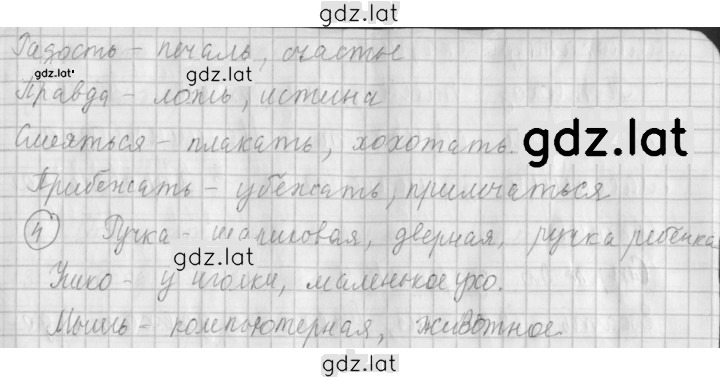 gdz.lat
Радость – печаль, счастье
gdz.lat
gdz.lat
Правда – ложь, истина
gdz.lat
Смеяться – плакать, хохотать.
Прибежать – убежать, примчаться
4 Ручка – шариковая, дверная, ручка ребёнка
gdz.lat
Ушко – у иголки, маленькое ухо.
Мышь – компьютерная, животное.
gdz.lat